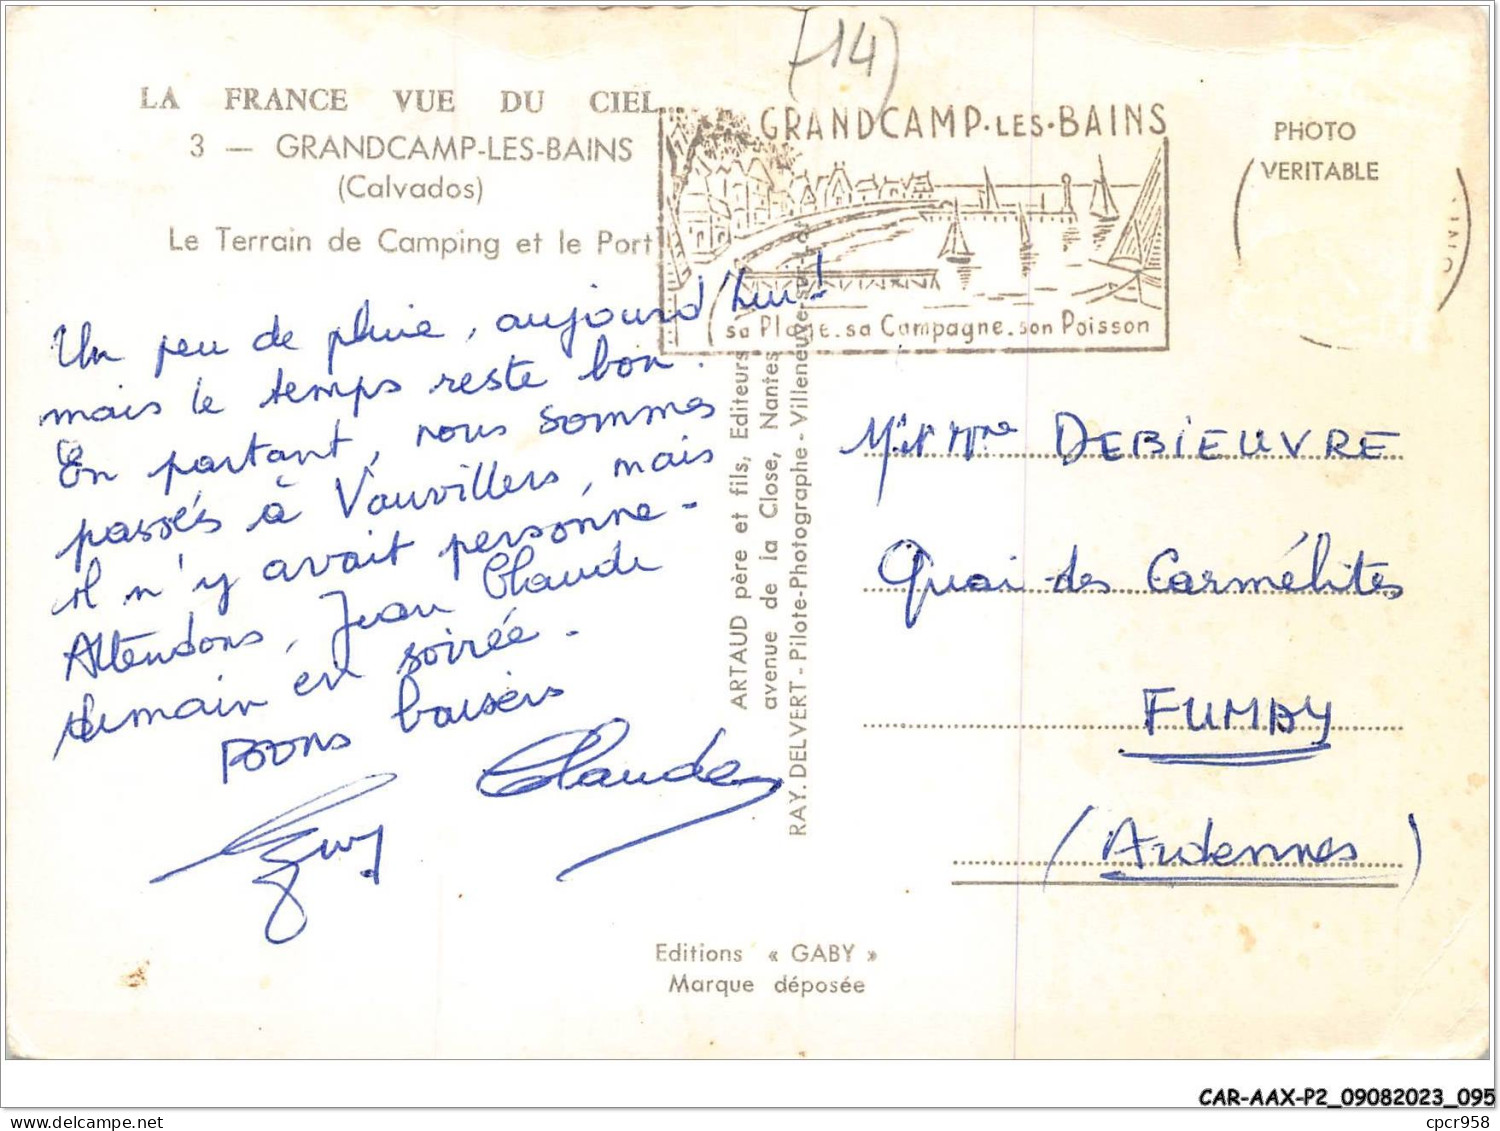 (14)
LA FRANCE VUE DU CIEL...
3 — GRANDCAMP-LES-BAINS
(Calvados)
Le Terrain de Camping et le Port
GRANDCAMP-LES-BAINS
sa Plage. sa Campagne. son Poisson
PHOTO
VERITABLE
Un peu de pluie, aujourd'hui!
mais le temps reste bon.
En partant, nous sommes
passés à Vauvillers, mais
il n'y avait personne-
Attendons, Jean Claude
demain en soirée-
Bons baisers
Claude
Guy
ARTAUD père et fils, Editeurs
avenue de la Close, Nantes
RAY. DELVERT - Pilote-Photographe - Villeneuve-sur-Lot
Mr et Mme DEBIEUVRE
Quai des Carmélites
FUMAY
(Ardennes)
Editions « GABY »
Marque déposée
CAR-AAX-P2_09082023_095
delcampe.net
cpcr958